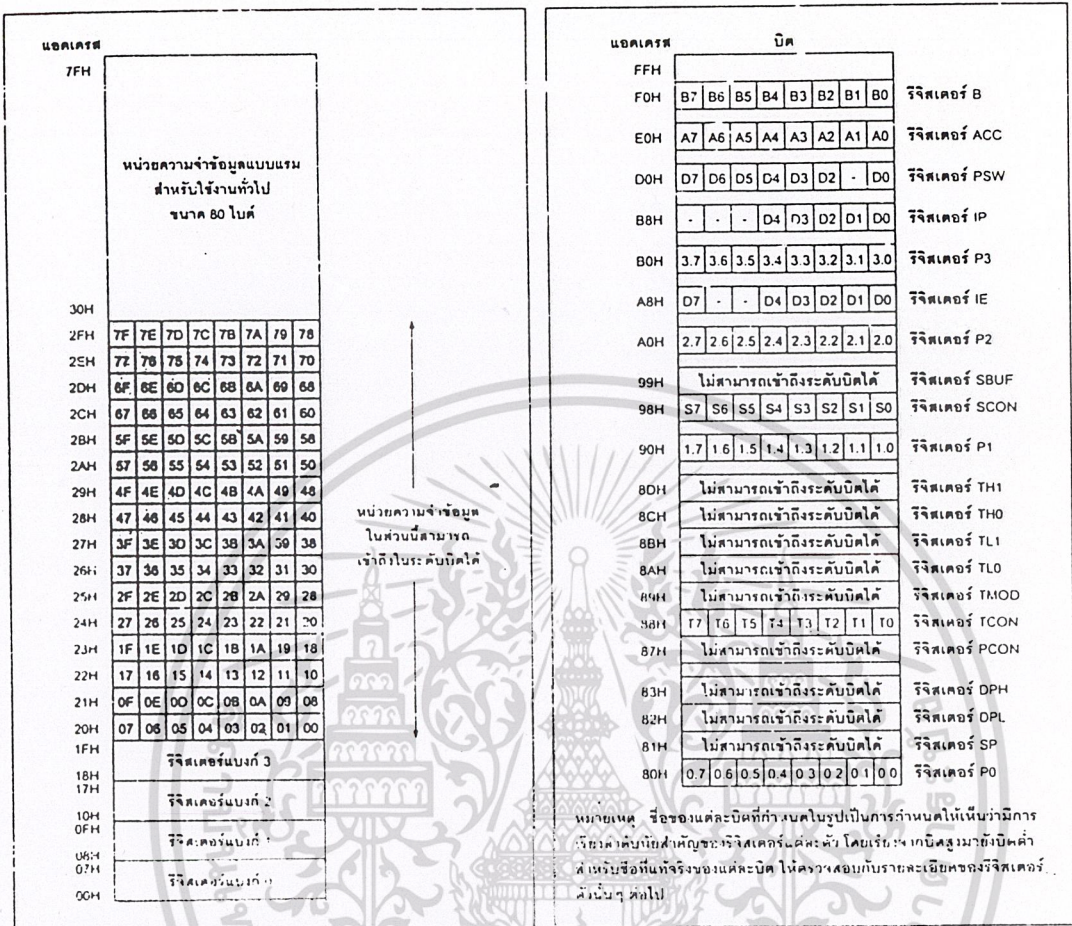 แอดเดรส
7FH
หน่วยความจำข้อมูลแบบแรม
สำหรับใช้งานทั่วไป
ขนาด 80 ไบต์
30H
2FH 7F 7E 7D 7C 7B 7A 79 78
2EH 77 76 75 74 73 72 71 70
2DH 6F 6E 6D 6C 6B 6A 69 68
2CH 67 66 65 64 63 62 61 60
2BH 5F 5E 5D 5C 5B 5A 59 58
2AH 57 56 55 54 53 52 51 50
29H 4F 4E 4D 4C 4B 4A 49 48
28H 47 46 45 44 43 42 41 40
27H 3F 3E 3D 3C 3B 3A 39 38
26H 37 36 35 34 33 32 31 30
25H 2F 2E 2D 2C 2B 2A 29 28
24H 27 26 25 24 23 22 21 20
23H 1F 1E 1D 1C 1B 1A 19 18
22H 17 16 15 14 13 12 11 10
21H 0F 0E 0D 0C 0B 0A 09 08
20H 07 06 05 04 03 02 01 00
1FH
รีจิสเตอร์แบงก์ 3
18H
17H
รีจิสเตอร์แบงก์ 2
10H
0FH
รีจิสเตอร์แบงก์ 1
08H
07H
รีจิสเตอร์แบงก์ 0
00H
หน่วยความจำข้อมูล
ในส่วนนี้สามารถ
เข้าถึงในระดับบิตได้
แอดเดรส บิต
FFH
F0H B7 B6 B5 B4 B3 B2 B1 B0 รีจิสเตอร์ B
E0H A7 A6 A5 A4 A3 A2 A1 A0 รีจิสเตอร์ ACC
D0H D7 D6 D5 D4 D3 D2 - D0 รีจิสเตอร์ PSW
B8H - - - D4 D3 D2 D1 D0 รีจิสเตอร์ IP
B0H 3.7 3.6 3.5 3.4 3.3 3.2 3.1 3.0 รีจิสเตอร์ P3
A8H D7 - - D4 D3 D2 D1 D0 รีจิสเตอร์ IE
A0H 2.7 2.6 2.5 2.4 2.3 2.2 2.1 2.0 รีจิสเตอร์ P2
99H ไม่สามารถเข้าถึงระดับบิตได้ รีจิสเตอร์ SBUF
98H S7 S6 S5 S4 S3 S2 S1 S0 รีจิสเตอร์ SCON
90H 1.7 1.6 1.5 1.4 1.3 1.2 1.1 1.0 รีจิสเตอร์ P1
8DH ไม่สามารถเข้าถึงระดับบิตได้ รีจิสเตอร์ TH1
8CH ไม่สามารถเข้าถึงระดับบิตได้ รีจิสเตอร์ TH0
8BH ไม่สามารถเข้าถึงระดับบิตได้ รีจิสเตอร์ TL1
8AH ไม่สามารถเข้าถึงระดับบิตได้ รีจิสเตอร์ TL0
89H ไม่สามารถเข้าถึงระดับบิตได้ รีจิสเตอร์ TMOD
88H T7 T6 T5 T4 T3 T2 T1 T0 รีจิสเตอร์ TCON
87H ไม่สามารถเข้าถึงระดับบิตได้ รีจิสเตอร์ PCON
83H ไม่สามารถเข้าถึงระดับบิตได้ รีจิสเตอร์ DPH
82H ไม่สามารถเข้าถึงระดับบิตได้ รีจิสเตอร์ DPL
81H ไม่สามารถเข้าถึงระดับบิตได้ รีจิสเตอร์ SP
80H 0.7 0.6 0.5 0.4 0.3 0.2 0.1 0.0 รีจิสเตอร์ P0
หมายเหตุ ชื่อของแต่ละบิตที่กำหนดในรูปเป็นการกำหนดให้เห็นว่ามีการ
เรียงลำดับนัยสำคัญของรีจิสเตอร์แต่ละตัว โดยเรียงจากบิตสูงมายังบิตต่ำ
สำหรับชื่อที่แท้จริงของแต่ละบิต ให้ตรวจสอบกับรายละเอียดของรีจิสเตอร์
ตัวนั้น ๆ ต่อไป